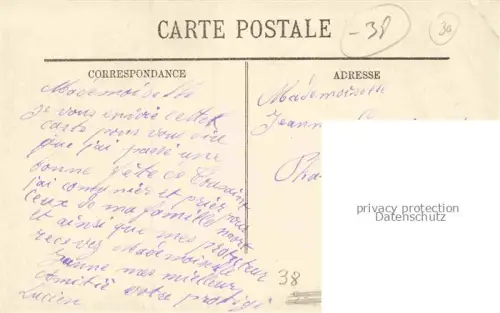 CARTE POSTALE
-38
30
CORRESPONDANCE
ADRESSE
Mademoiselle
je vous envoie cette
carte pour vous dire
que j'ai passé une
bonne fête de Tousaint
j'ai comunier et prier pour
ceux de ma famille mort
et ainsi que mes protecteur
recevez Mademoiselle
Jeanne mes meilleurs
Amitié votre protégé
Lucien
Mademoiselle
Jeanne
Pha
privacy protection
Datenschutz
38